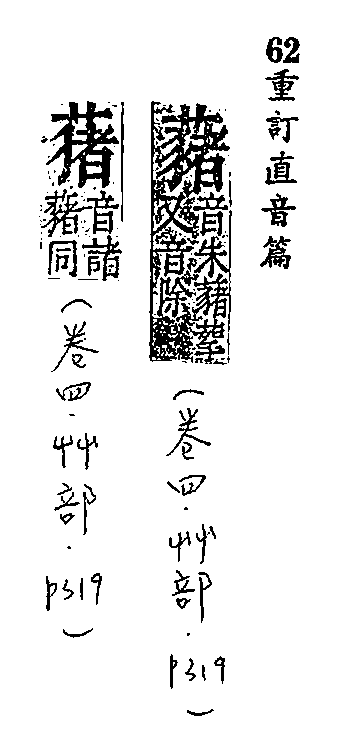 62重訂直音篇
藸音朱藸𦿆又音除
(卷四.艸部.p319)
藷音諸藸同
(卷四.艸部.p319)